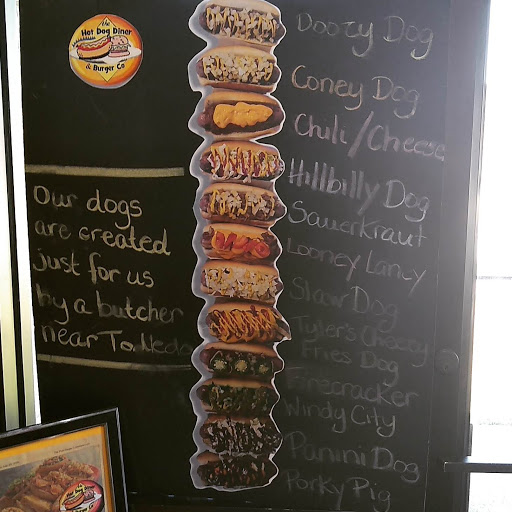 the
Hot Dog Diner
& Burger Co
Doozy Dog
Coney Dog
Chili/Cheese
Hillbilly Dog
Sauerkraut
Looney Laney
Slaw Dog
Tyler's Cheesy
Fries Dog
Firecracker
Windy City
Panini Dog
Porky Pig
Our dogs
are created
just for us
by a butcher
near Toledo